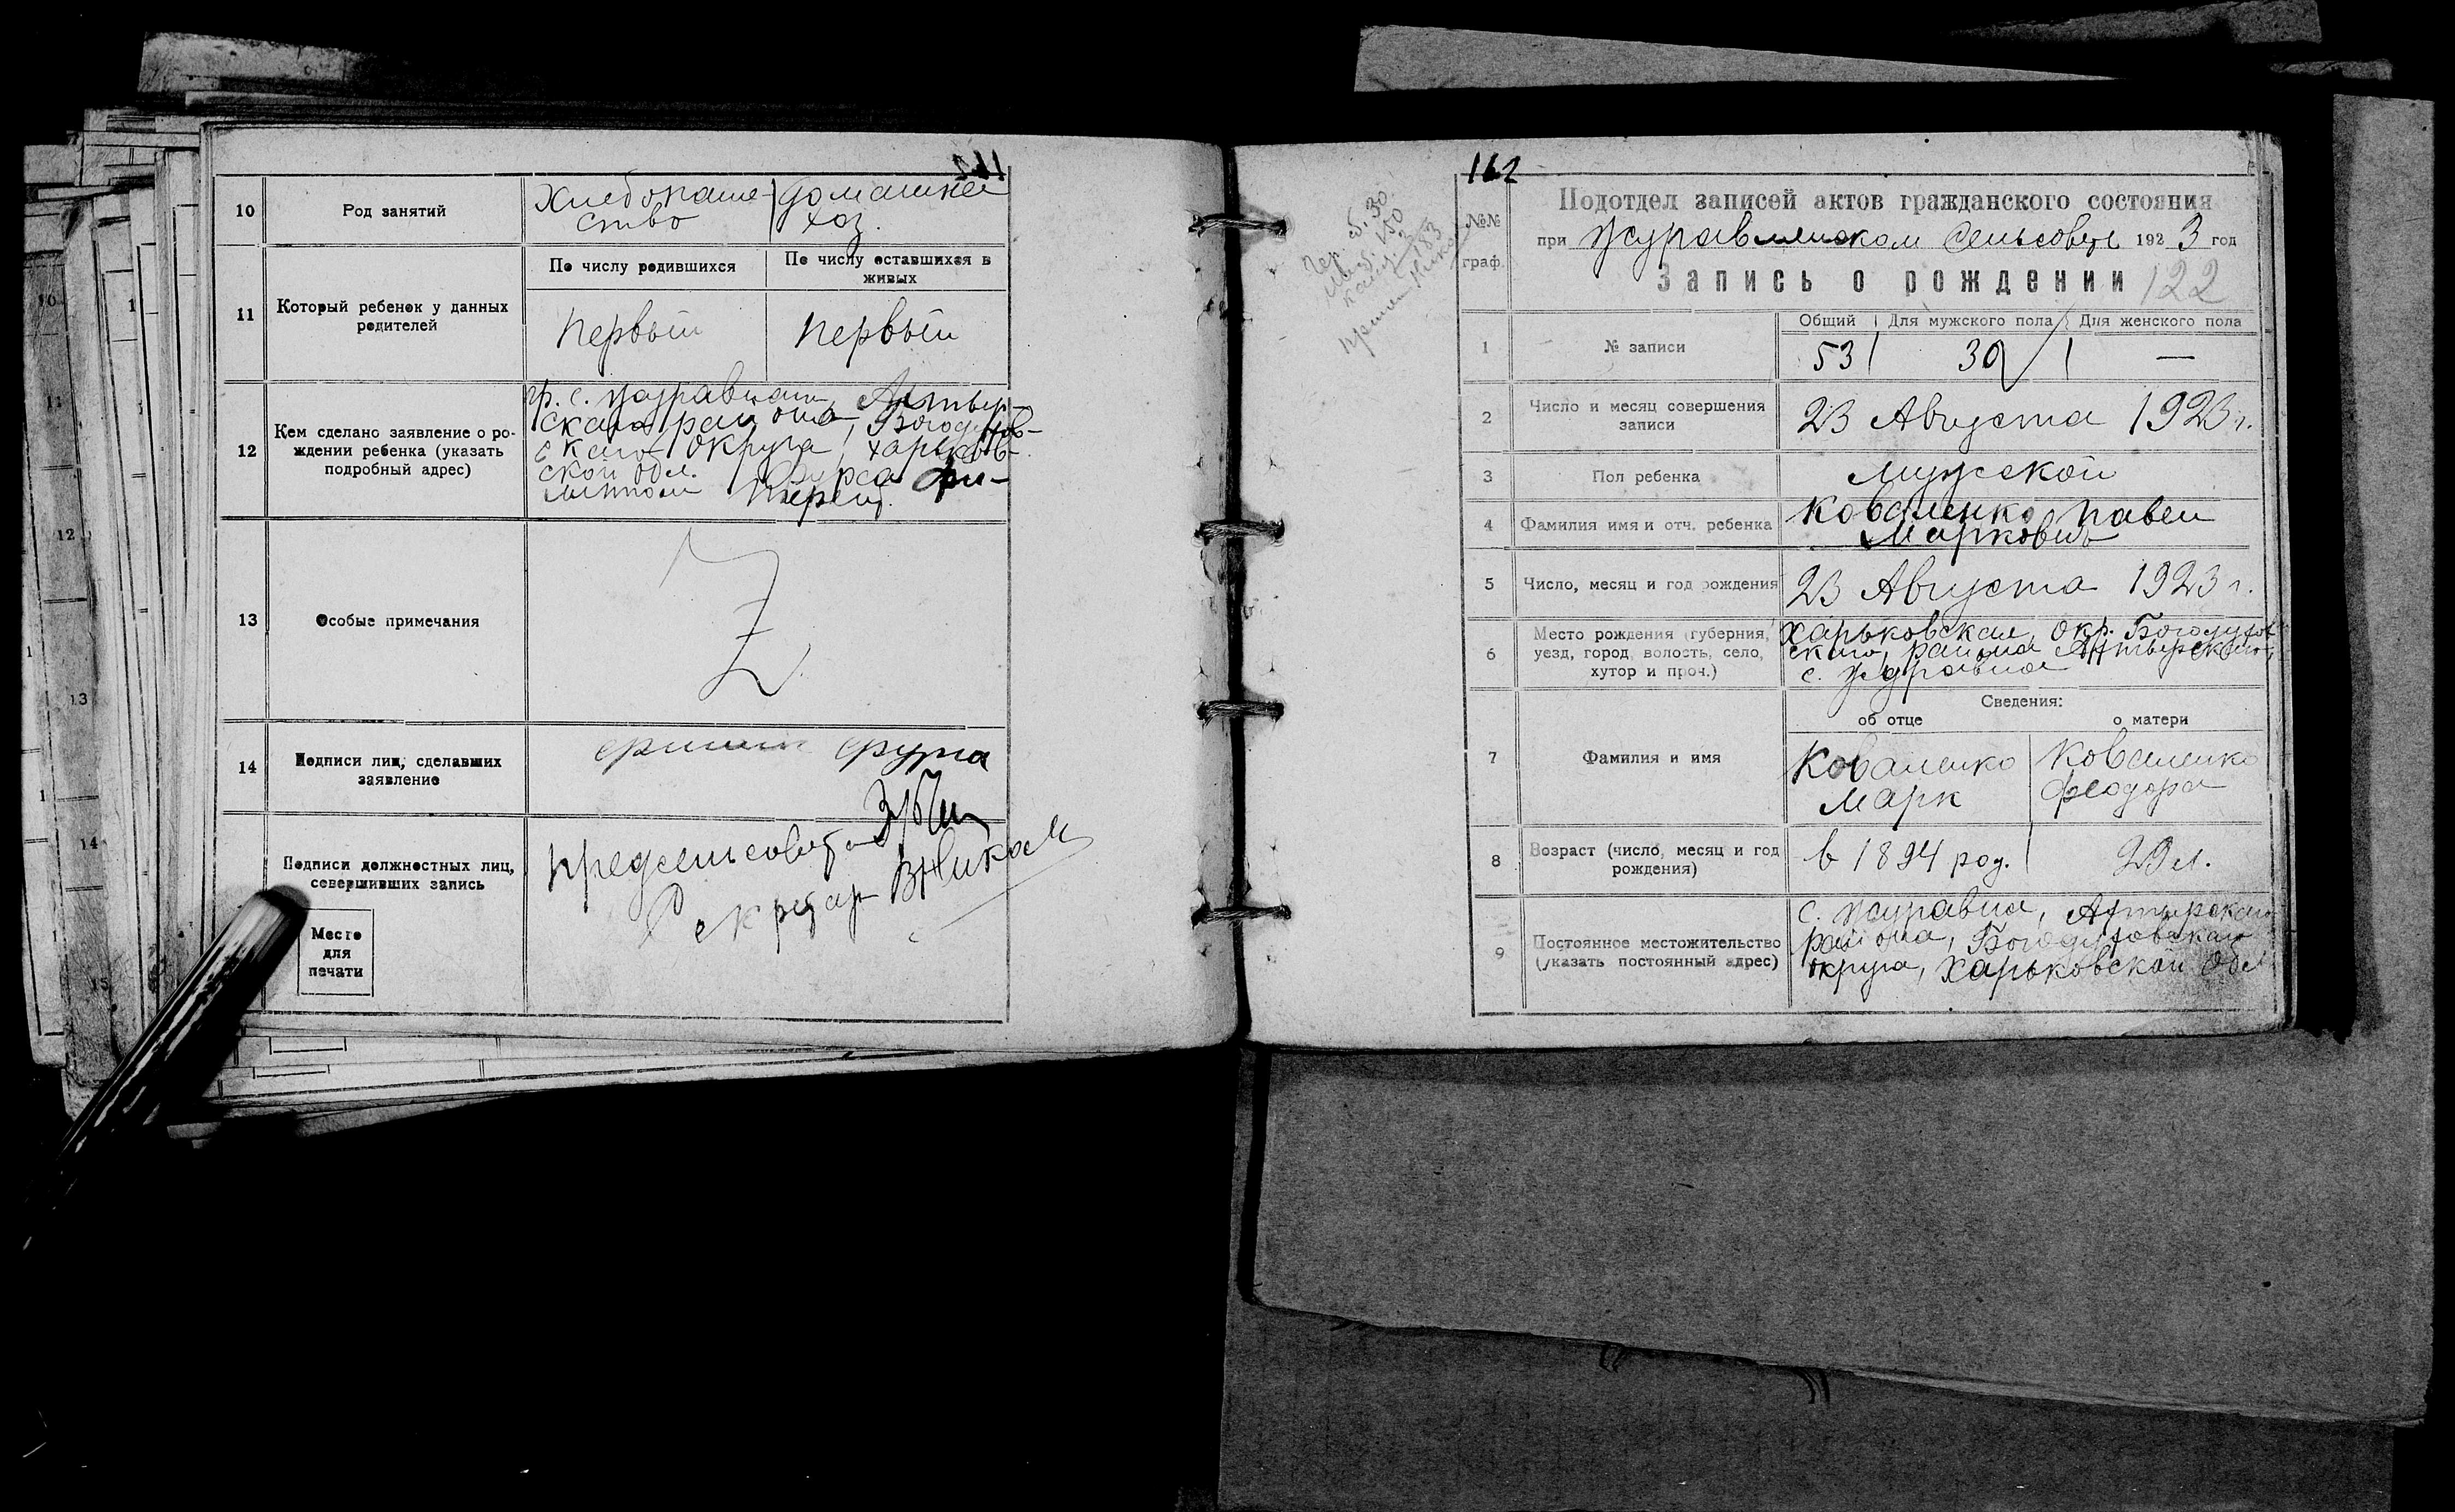 10
Род занятий
Хлебопаше-
ство
домашнее
хоз.
11
Который ребенок у данных
родителей
По числу родившихся
По числу оставшихся в
живых
первый
первый
12
Кем сделано заявление о ро-
ждении ребенка (указать
подробный адрес)
гр. с.
скаго района, Богодухов-
скаго округа, Харьков-
ской обл.
13
Особые примечания
14
Подписи лиц, сделавших
заявление
Подписи должностных лиц,
совершивших запись
предсельсовета
Секретар
Место
для
печати
162
№№
граф.
Подотдел записей актов гражданского состояния
при Журавлянском сельсовете 1923 год
Запись о рождении 122
1
№ записи
Общий
Для мужского пола
Для женского пола
53
30
—
2
Число и месяц совершения
записи
23 Августа 1923 г.
3
Пол ребенка
Мужской
4
Фамилия имя и отч. ребенка
Коваленко Павел
Маркович
5
Число, месяц и год рождения
23 Августа 1923 г.
6
Место рождения (губерния,
уезд, город, волость, село,
хутор и проч.)
Харьковская, Окр. Богодухов
скаго, района
с. Журавная
Сведения:
об отце
о матери
7
Фамилия и имя
Коваленко
Марк
Коваленко
Феодора
8
Возраст (число, месяц и год
рождения)
в 1894 род.
29 л.
9
Постоянное местожительство
(указать постоянный адрес)
с. Журавная,
района, Богодуховскаго
округа, Харьковской Обл